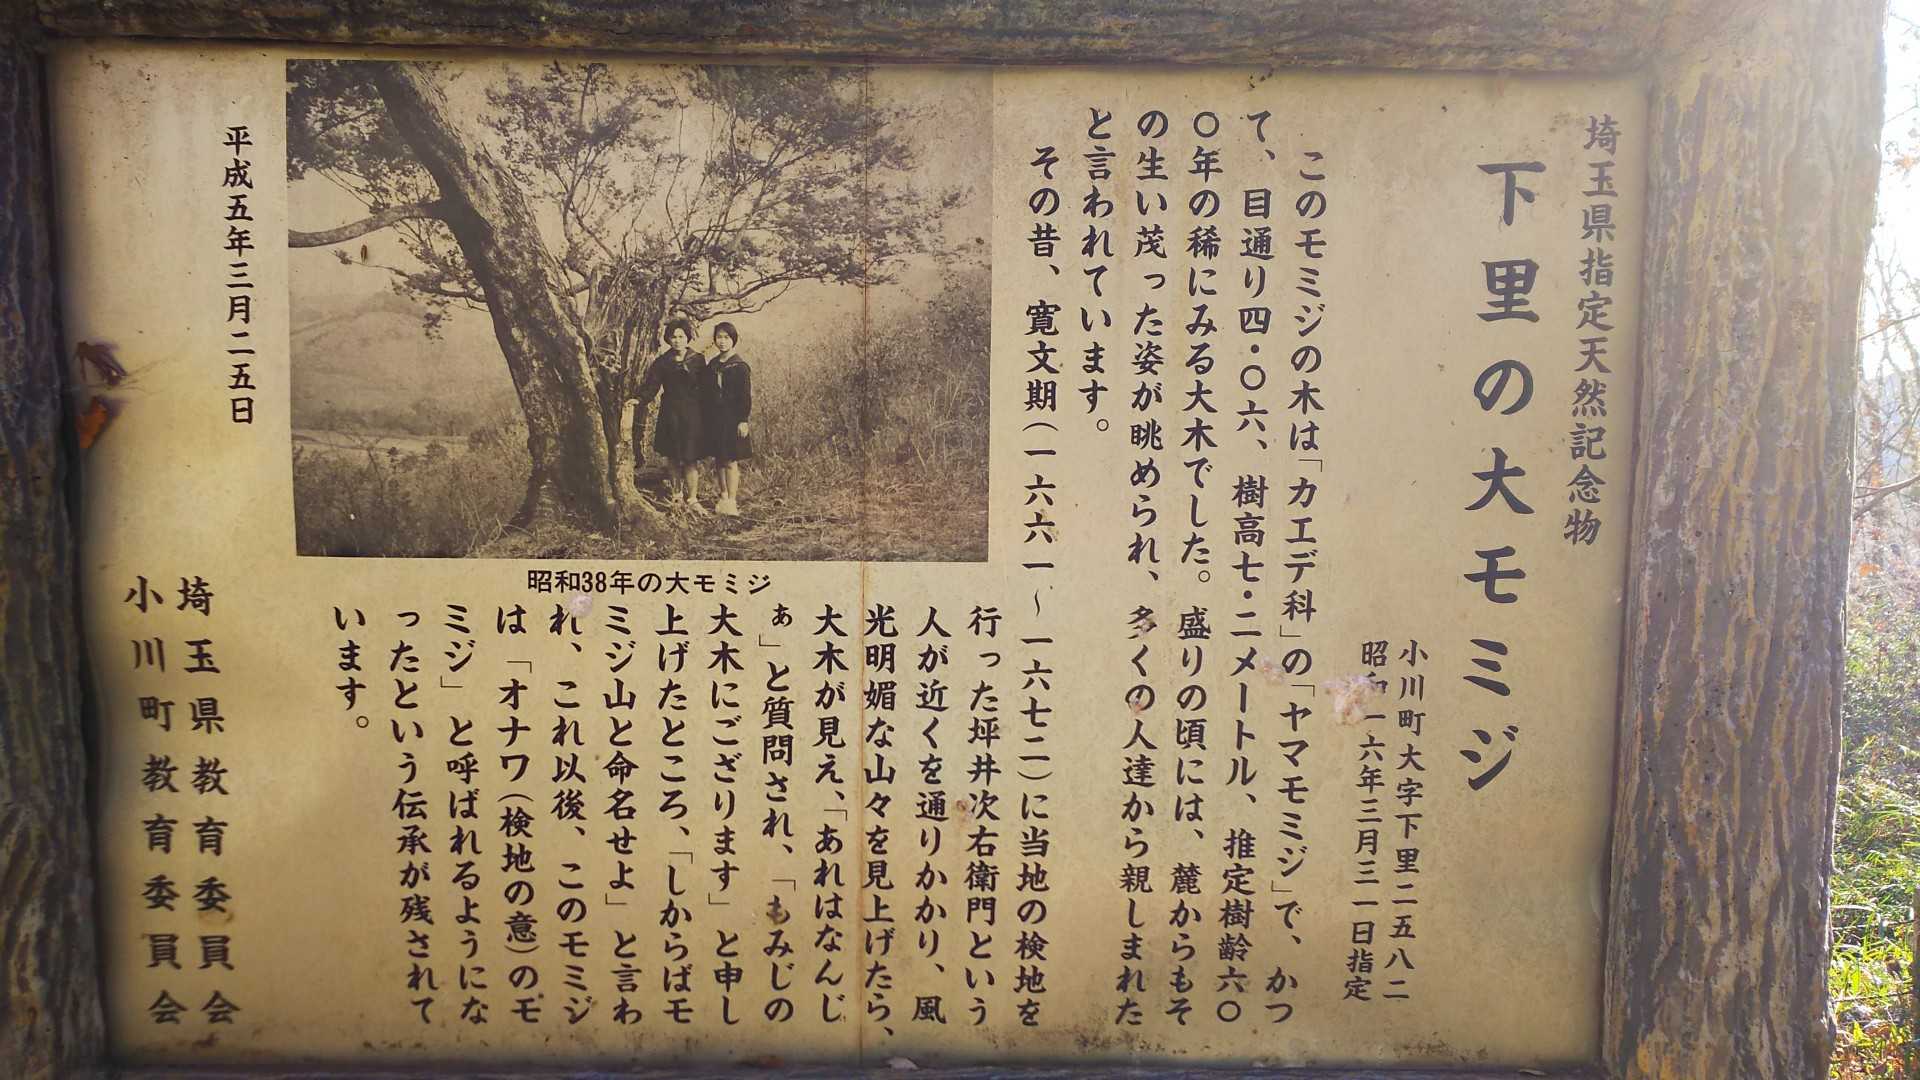 埼玉県指定天然記念物
下里の大モミジ
小川町大字下里二五八二
昭和一六年三月三一日指定
このモミジの木は「カエデ科」の「ヤマモミジ」で、かつ
て、目通り四・〇六、樹高七・二メートル、推定樹齢六〇
〇年の稀にみる大木でした。盛りの頃には、麓からもそ
の生い茂った姿が眺められ、多くの人達から親しまれた
と言われています。
その昔、寛文期(一六六一〜一六七二)に当地の検地を
行った坪井次右衛門という
人が近くを通りかかり、風
光明媚な山々を見上げたら、
大木が見え、「あれはなんじ
ぁ」と質問され、「もみじの
大木にござります」と申し
上げたところ、「しからばモ
ミジ山と命名せよ」と言わ
れ、これ以後、このモミジ
は「オナワ(検地の意)のモ
ミジ」と呼ばれるようにな
ったという伝承が残されて
います。
昭和38年の大モミジ
平成五年三月二五日
埼玉県教育委員会
小川町教育委員会